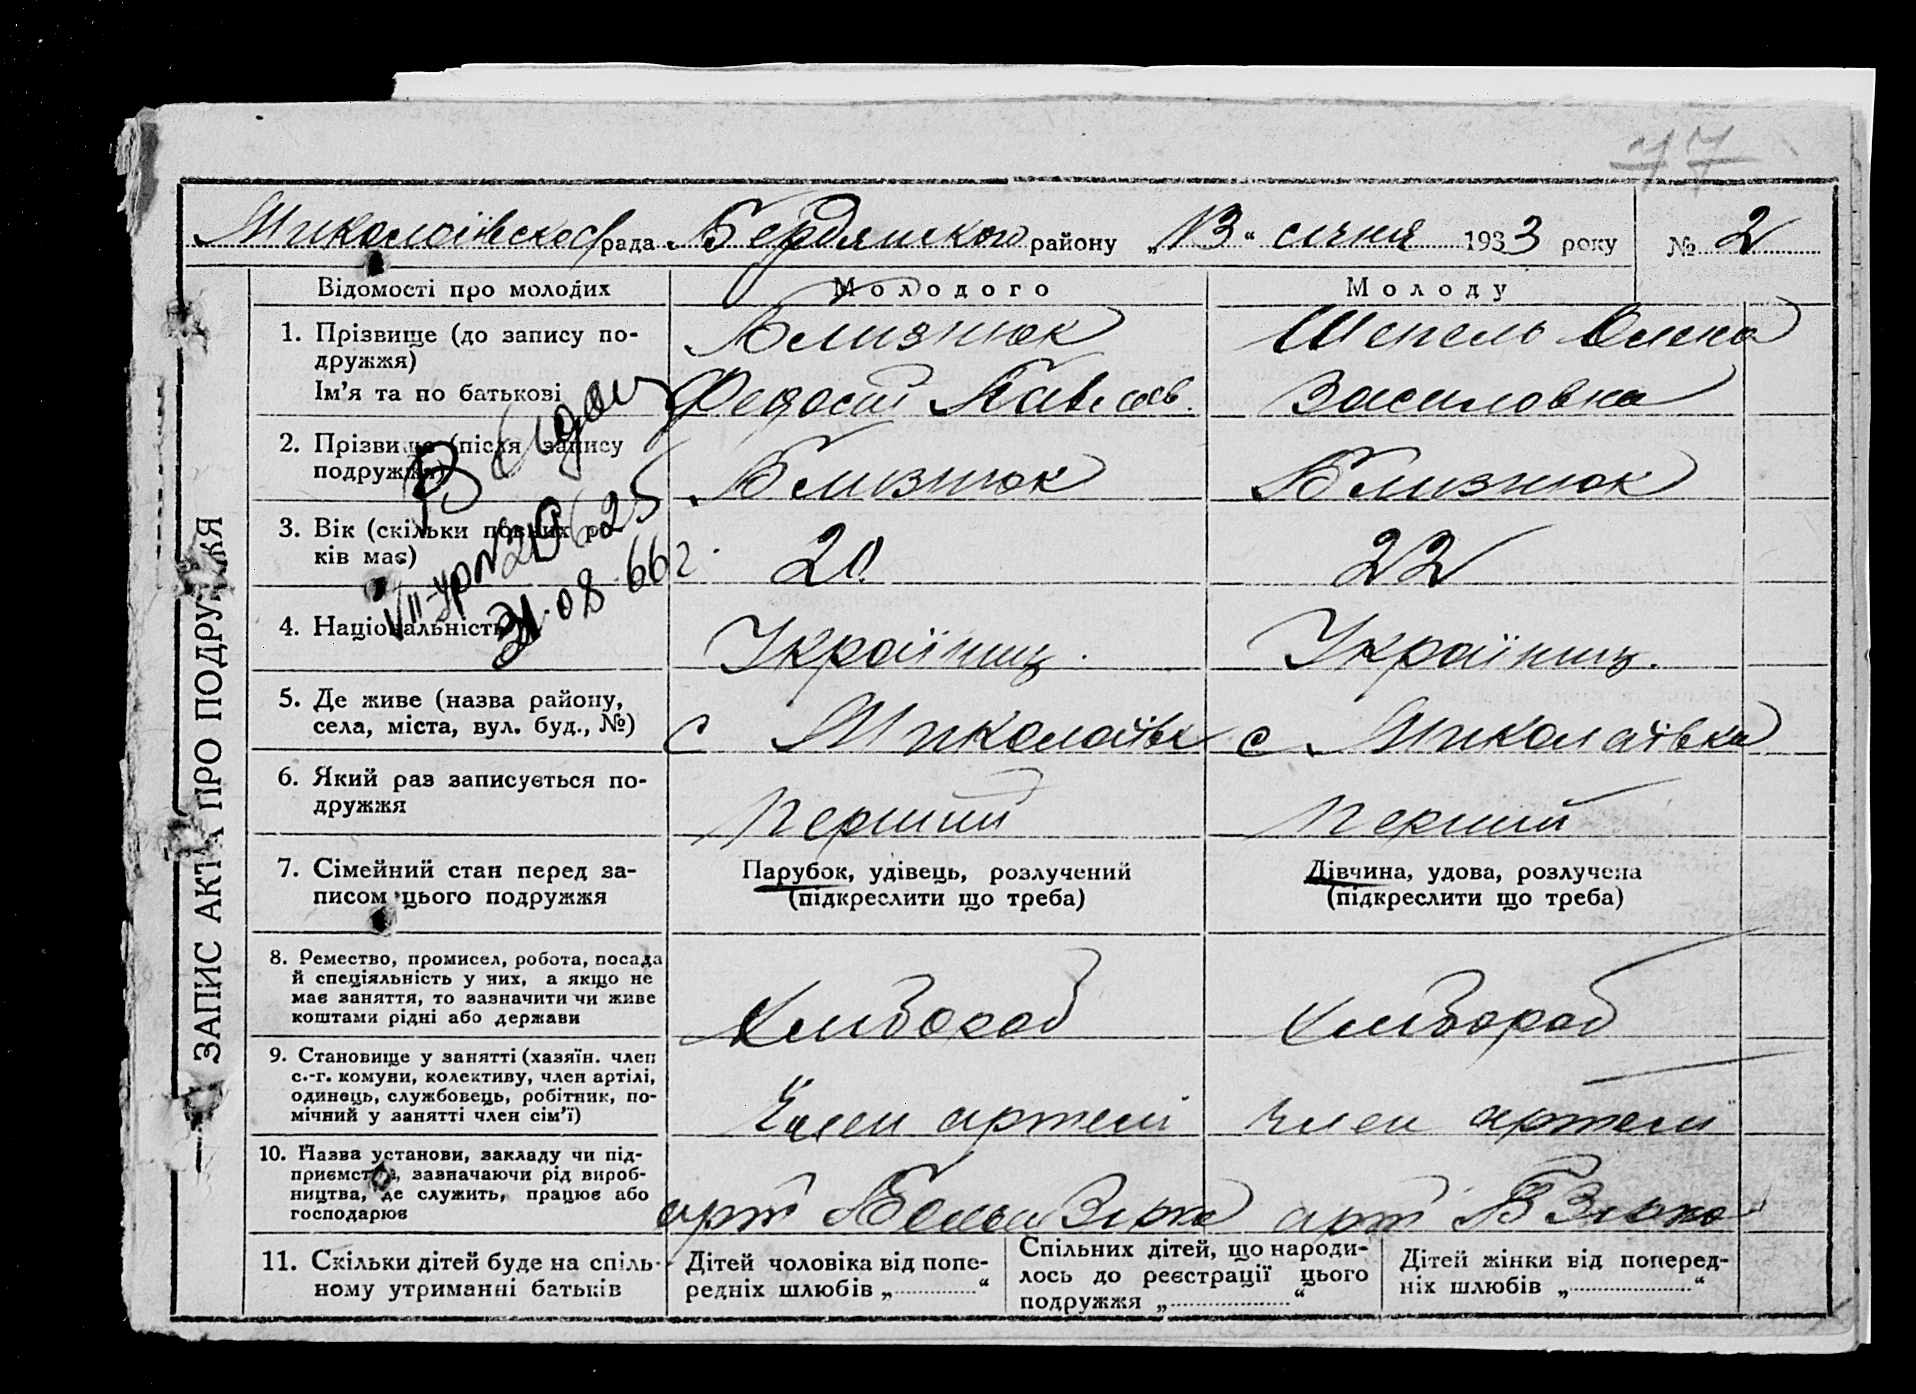 77
Миколаївської рада Бердянского району „13“ січня 1933 року № 2
ЗАПИС АКТА ПРО ПОДРУЖЖЯ
Відомості про молодих Молодого Молоду
1. Прізвище (до запису по-
дружжя)
Близнюк Шепель Олена
Ім'я та по батькові
Федосій Павлов. Василовка
2. Прізвище (після запису
подружжя)
Близнюк Близнюк
3. Вік (скільки повних ро-
ків має)
20 22
Видано
VII-УР № 206625
31.08.66 г.
4. Національність
Українц. Українц.
5. Де живе (назва району,
села, міста, вул. буд., №)
с Миколаївк с Миколаївка
6. Який раз записується по-
дружжя
Перший Перший
7. Сімейний стан перед за-
писом цього подружжя
Парубок, удівець, розлучений
(підкреслити що треба)
Дівчина, удова, розлучена
(підкреслити що треба)
8. Ремество, промисел, робота, посада
й спеціяльність у них, а якщо не
має заняття, то зазначити чи живе
коштами рідні або держави
Хлибороб Хлибороб
9. Становище у занятті (хазяїн. член
с.-г. комуни, колективу, член артілі,
одинець, службовець, робітник, по-
мічний у занятті член сім'ї)
Член артелі Член артели
10. Назва установи, закладу чи під-
приємства, зазначаючи рід вироб-
ництва, де служить, працює або
господарює
арт арт
11. Скільки дітей буде на спіль-
ному утриманні батьків
Дітей чоловіка від попе-
редніх шлюбів „..............“
Спільних дітей, що народи-
лось до реєстрації цього
подружжя „....................“
Дітей жінки від поперед-
ніх шлюбів „....................“